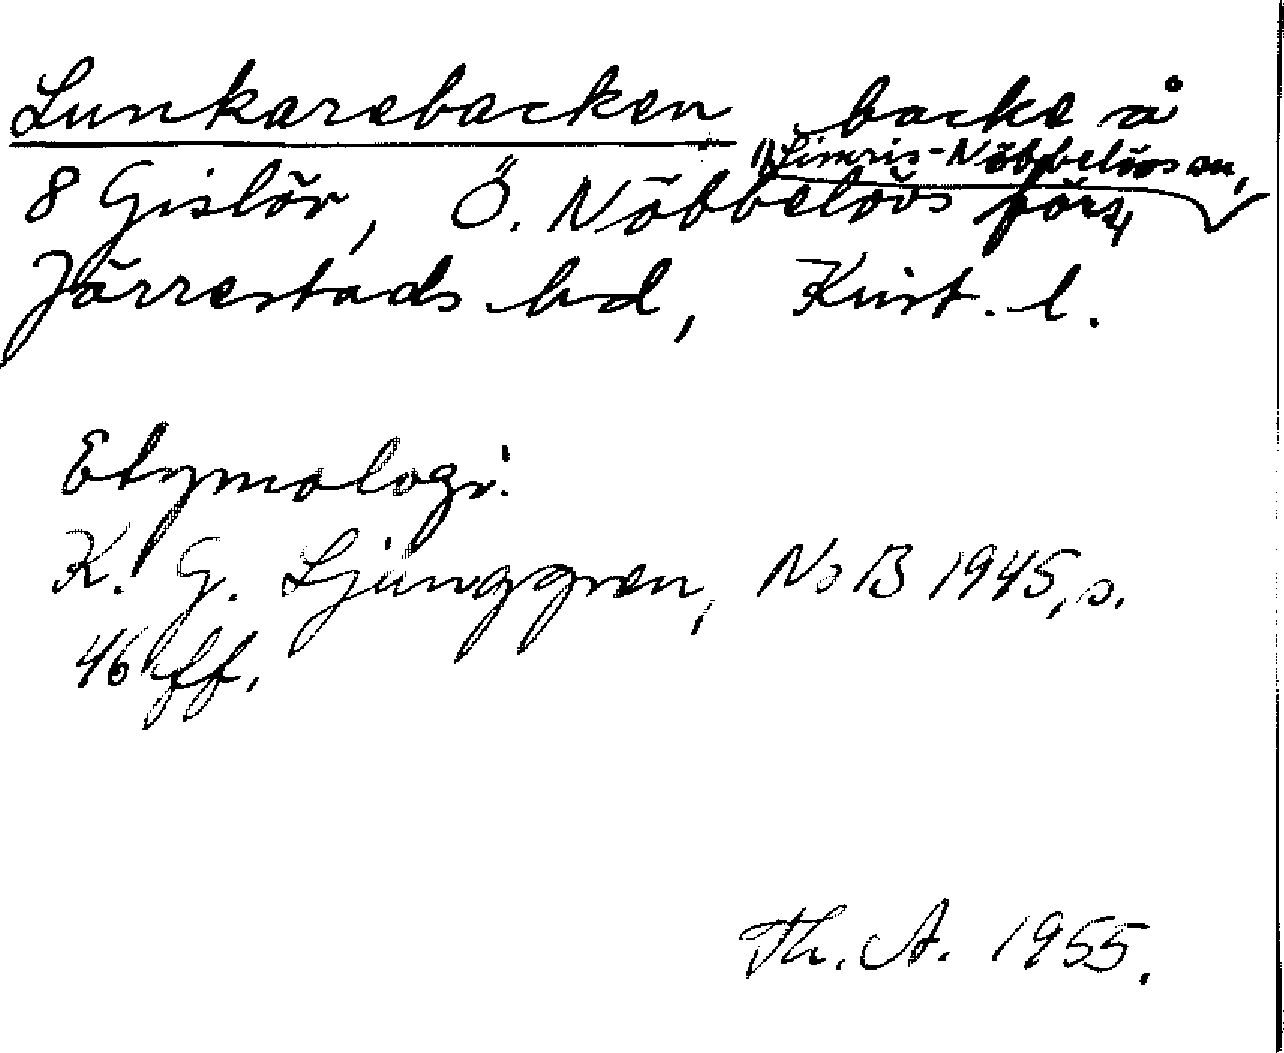 Lunkarebacken backe å
Simris-Nöbbelövs sn,
8 Gislöv, Ö. Nöbbelövs förs
Järrestads hd, Krist. l.
Etymologi:
K. G. Ljunggren, NoB 1945, s.
46 ff.
Th. A. 1955.